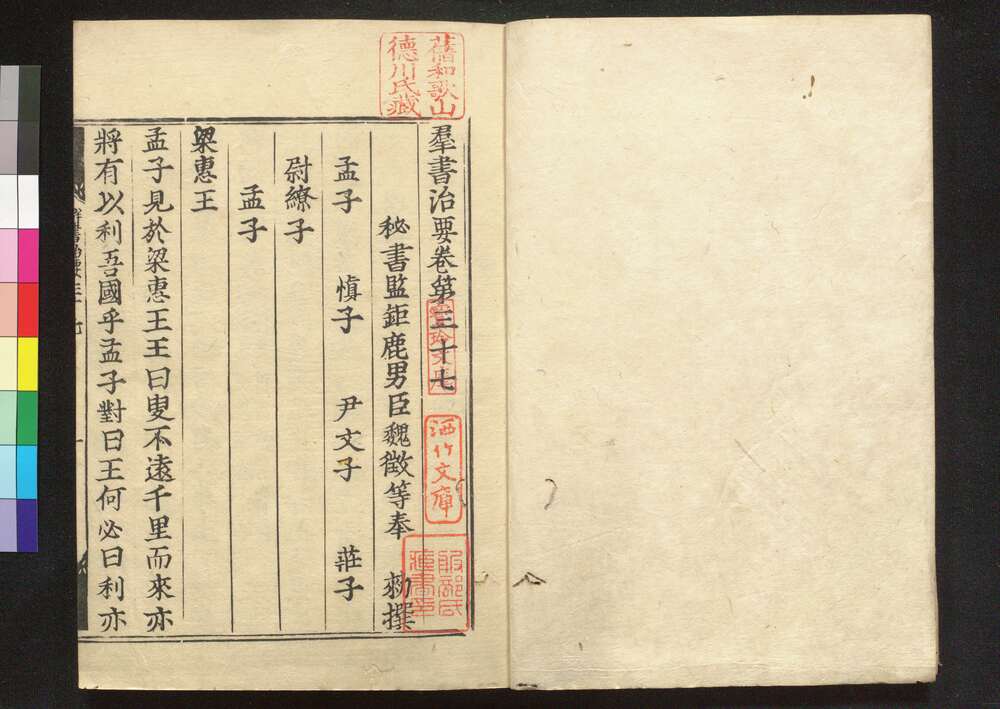 羣書治要卷第三十七
秘書監鉅鹿男臣魏徵等奉 勑撰
孟子 慎子 尹文子 莊子
尉繚子
孟子
梁惠王
孟子見於梁惠王王曰叟不遠千里而來亦
將有以利吾國乎孟子對曰王何必曰利亦
舊和歌山
德川氏藏
寶玲文庫
洒竹文庫
服部氏
藏書印